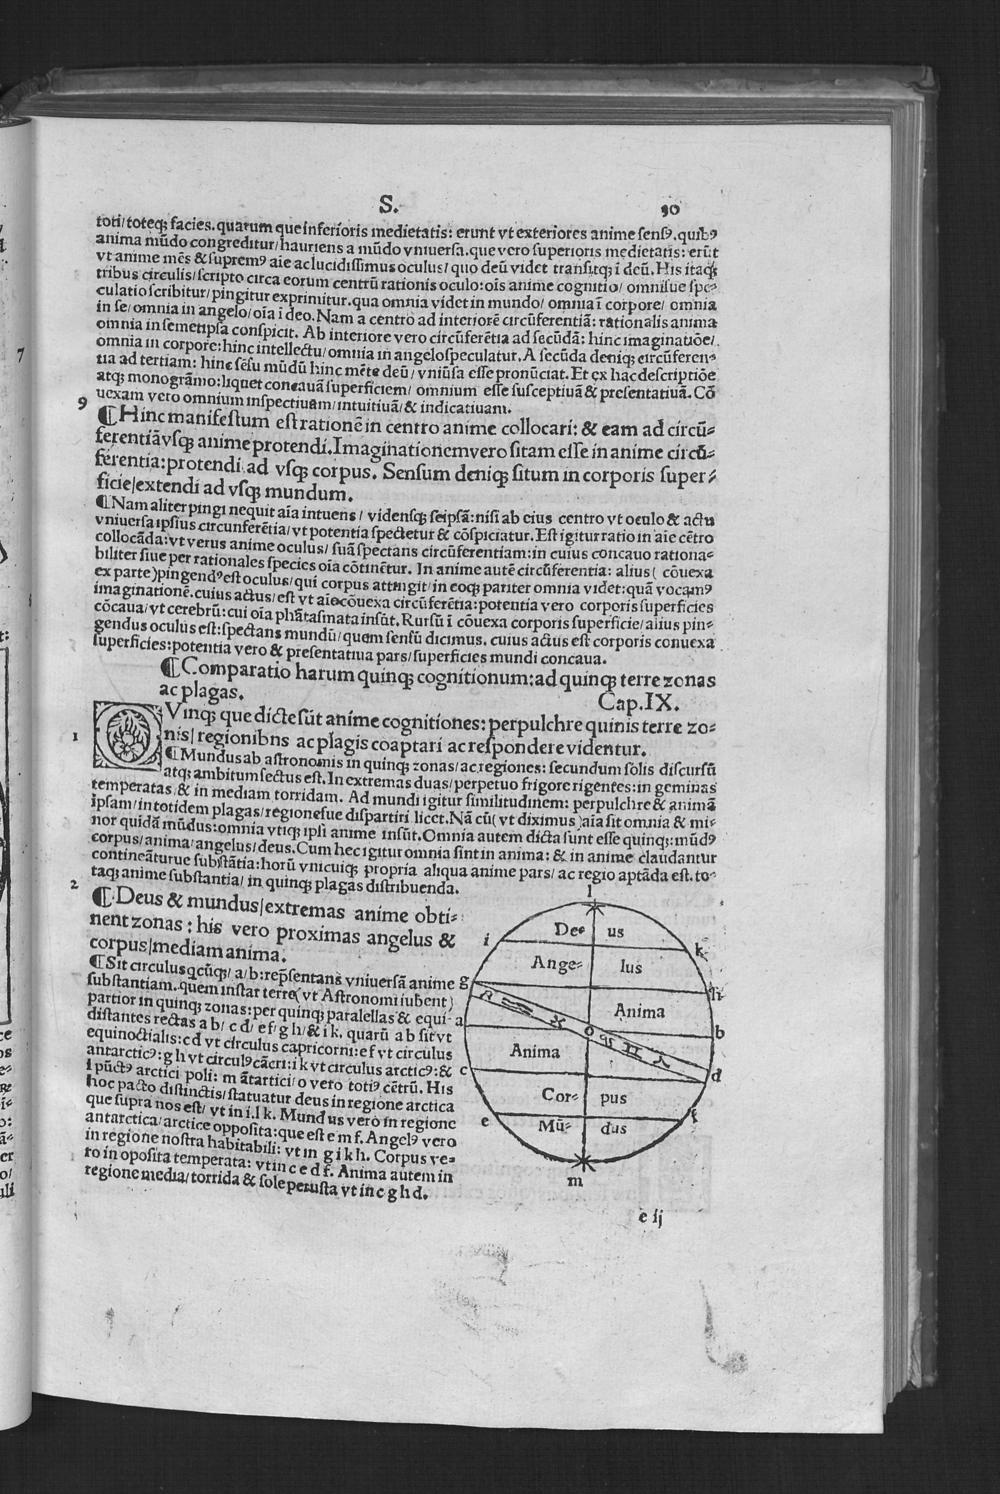 S. 90
toti/ toteqʒ facies. quarum que inferioris medietatis: erunt vt exteriores anime senſꝰ. quibꝰ
anima mūdo congreditur/ hauriens a mūdo vniuerſa. que vero ſuperioris medietatis: erūt
vt anime mēs & ſupremꝰ aīe ac lucidiſſimus oculus/ quo deū videt tranſitqʒ ī deū. His itaqʒ
tribus circulis/ ſcripto circa eorum centrū rationis oculo: oīs anime cognitio/ omniſue ſpe-
culatio ſcribitur/ pingitur exprimitur. qua omnia videt in mundo/ omnia ī corpore/ omnia
in ſe/ omnia in angelo/ oīa ī deo. Nam a centro ad interiorē circūferentiā: rationalis anima
omnia in ſemetipſa conſpicit. Ab interiore vero circūferētia ad ſecūdā: hinc imaginatiōe/
omnia in corpore: hinc intellectu/ omnia in angelo ſpeculatur. A ſecūda deniqʒ circūferen-
tia ad tertiam: hinc ſēſu mūdū hinc mēte deū/ vniūſa eſſe pronūciat. Et ex hac deſcriptiōe
atqʒ monogrāmo: liquet concauā ſuperficiem/ omnium eſſe ſuſceptiuā & preſentatiuā. Cō
uexam vero omnium inſpectiuam/ intuitiuā/ & indicatiuam.
9 ¶Hinc manifeſtum eſt rationē in centro anime collocari: & eam ad circū-
ferentiā vſqʒ anime protendi. Imaginationem vero ſitam eſſe in anime circū-
ferentia: protendi ad vſqʒ corpus. Senſum deniqʒ ſitum in corporis ſuper-
ficie/ extendi ad vſqʒ mundum.
¶Nam aliter pingi nequit aīa intuens/ videnſqʒ ſeipſā: niſi ab eius centro vt oculo & actu
vniuerſa ipſius circunferētia/ vt potentia ſpectetur & cōſpiciatur. Eſt igitur ratio in aīe cētro
collocāda: vt verus anime oculus/ ſuā ſpectans circūferentiam: in cuius concauo rationa-
biliter ſiue per rationales ſpecies oīa cōtinētur. In anime autē circūferentia: alius ( cōuexa
ex parte) pingendꝰ eſt oculus/ qui corpus attingit/ in eoqʒ pariter omnia videt: quā vocamꝰ
imaginationē. cuius actus/ eſt vt aīe cōuexa circūferētia: potentia vero corporis ſuperficies
cōcaua/ vt cerebrū: cui oīa phātaſmata inſūt. Rurſū ī cōuexa corporis ſuperficie/ alius pin-
gendus oculus eſt: ſpectans mundū/ quem ſenſū dicimus. cuius actus eſt corporis conuexa
ſuperficies: potentia vero & preſentatiua pars/ ſuperficies mundi concaua.
¶Comparatio harum quinqʒ cognitionum: ad quinqʒ terre zonas
ac plagas. Cap. IX.
1 QVinqʒ que dicte ſūt anime cognitiones: perpulchre quinis terre zo-
nis/ regionibns ac plagis coaptari ac reſpondere videntur.
¶Mundus ab aſtronomis in quinqʒ zonas/ ac regiones: ſecundum ſolis diſcurſū
atqʒ ambitum ſectus eſt. In extremas duas/ perpetuo frigore rigentes: in geminas
temperatas. & in mediam torridam. Ad mundi igitur ſimilitudinem: perpulchre & animā
ipſam/ in totidem plagas/ regioneſue diſpartiri licet. Nā cū( vt diximus )aīa ſit omnia & mi-
nor quidā mūdus: omnia vtiqʒ ipſi anime inſūt. Omnia autem dicta ſunt eſſe quinqʒ: mūdꝰ
corpus/ anima/ angelus/ deus. Cum hec igitur omnia ſint in anima: & in anime claudantur
contineāturue ſubſtātia: horū vnicuiqʒ propria aliqua anime pars/ ac regio aptāda eſt. to-
taqʒ anime ſubſtantia/ in quinqʒ plagas diſtribuenda.
2 ¶Deus & mundus/ extremas anime obti-
nent zonas: his vero proximas angelus &
corpus/ mediam anima.
¶Sit circulus qcūqʒ/ a/ b: rep̄ſentans vniuerſā anime
ſubſtantiam. quem inſtar terre( vt Aſtronomi iubent)
partior in quinqʒ zonas: per quinqʒ paralellas & equi-
diſtantes rectas a b/ c d/ e f/ g h/ & i k. quarū a b ſit vt
equinoctialis: c d vt circulus capricorni: e f vt circulus
antarcticꝰ: g h vt circulꝰ cācri: i k vt circulus arcticꝰ: &
l pūctꝰ arctici poli: m ātartici/ o vero totiꝰ cētrū. His
hoc pacto diſtinctis/ ſtatuatur deus in regione arctica
que ſupra nos eſt/ vt in i. l k. Mundus vero in regione
antarctica/ arctice oppoſita: que eſt e m f. Angelꝰ vero
in regione noſtra habitabili: vt in g i k h. Corpus ve-
ro in opoſita temperata: vt in c e d f. Anima autem in
regione media/ torrida & ſole peruſta vt in c g h d.
l
De- us
i k
Ange- lus
g h
Anima
a o b
Anima
c d
Cor- pus
e f
Mū- dus
m
e ij